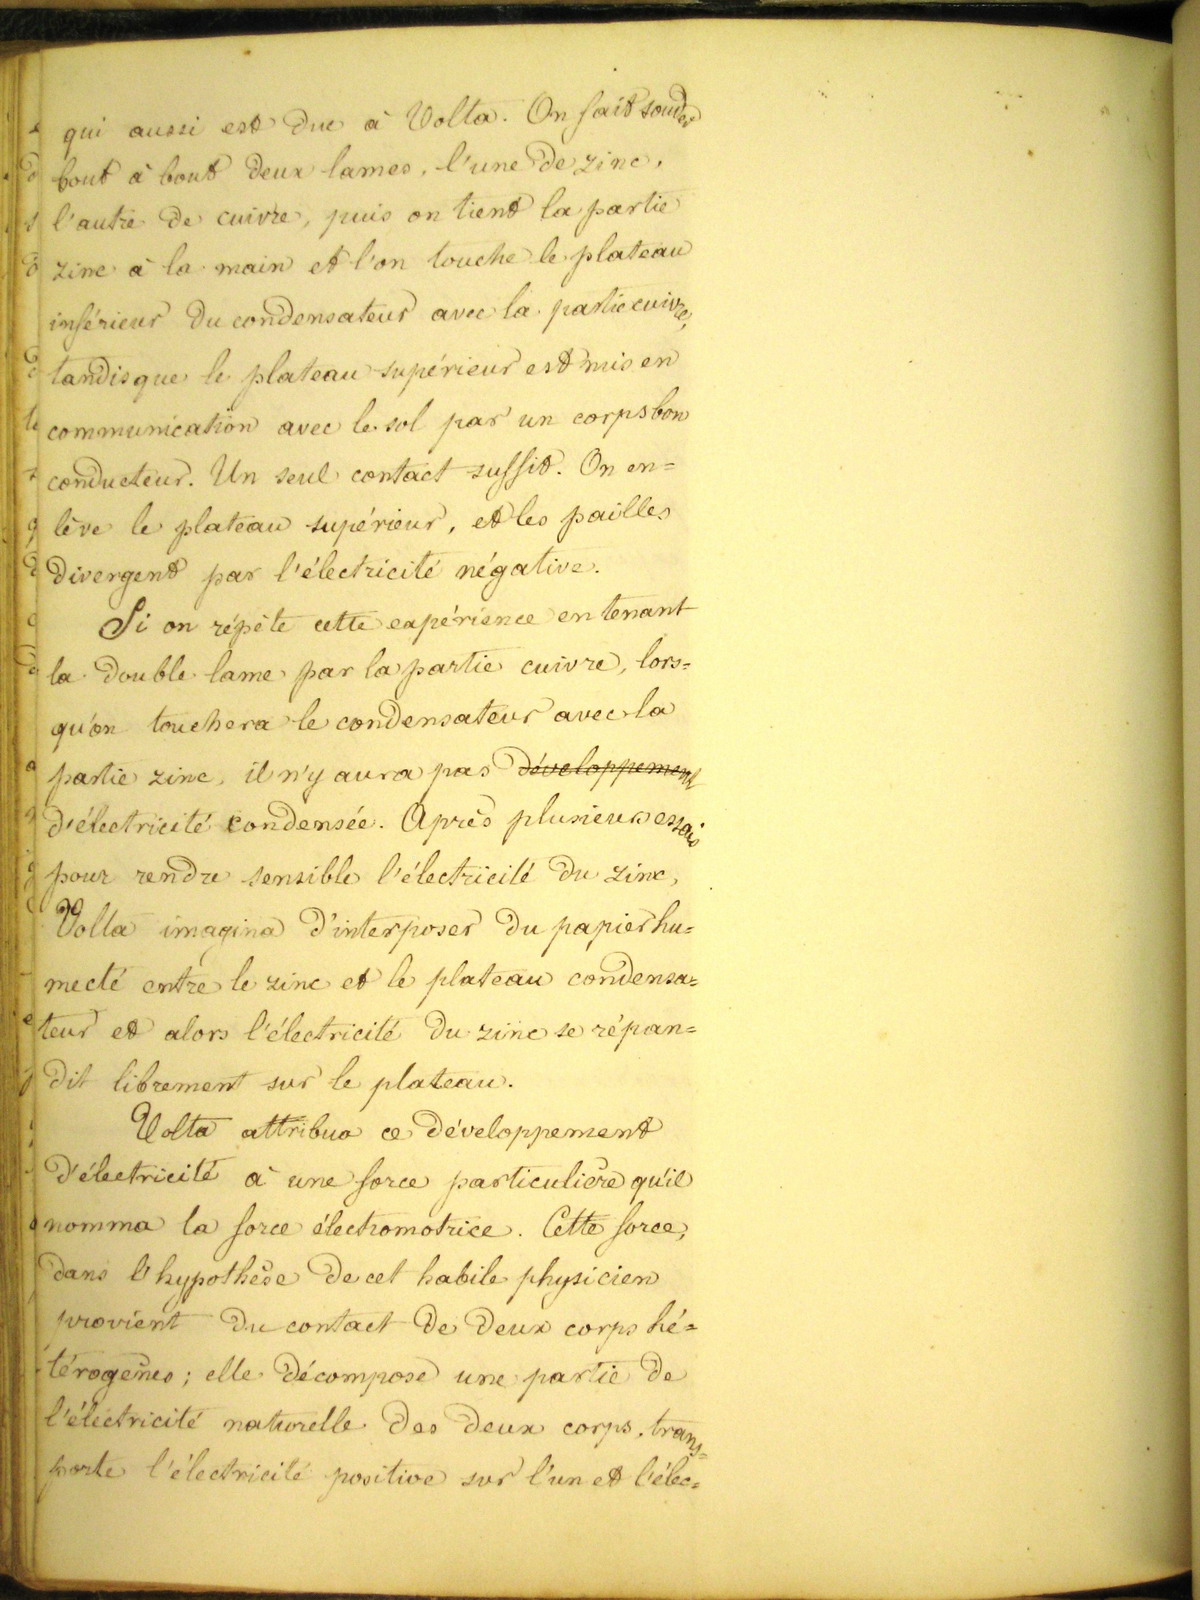 qui aussi est due à Volta. On fait souder
bout à bout deux lames, l'une de zinc,
l'autre de cuivre, puis on tient la partie
zinc à la main et l'on touche le plateau
inférieur du condensateur avec la partie cuivre,
tandisque le plateau supérieur est mis en
communication avec le sol par un corps bon
conducteur. Un seul contact suffit. On en=
lève le plateau supérieur, et les pailles
divergent par l'électricité négative.
Si on répète cette expérience en tenant
la double lame par la partie cuivre, lors=
qu'on touchera le condensateur avec la
partie zinc, il n'y aura pas développement
d'électricité condensée. Après plusieurs essais
pour rendre sensible l'électricité du zinc,
Volta imagina d'interposer du papier hu=
mecté entre le zinc et le plateau condensa=
teur et alors l'électricité du zinc se répan=
dit librement sur le plateau.
Volta attribua ce développement
d'électricité à une force particulière qu'il
nomma la force électromotrice. Cette force,
dans l'hypothèse de cet habile physicien
provient du contact de deux corps hé=
térogènes; elle décompose une partie de
l'électricité naturelle des deux corps, trans=
porte l'électricité positive sur l'un et l'élec=